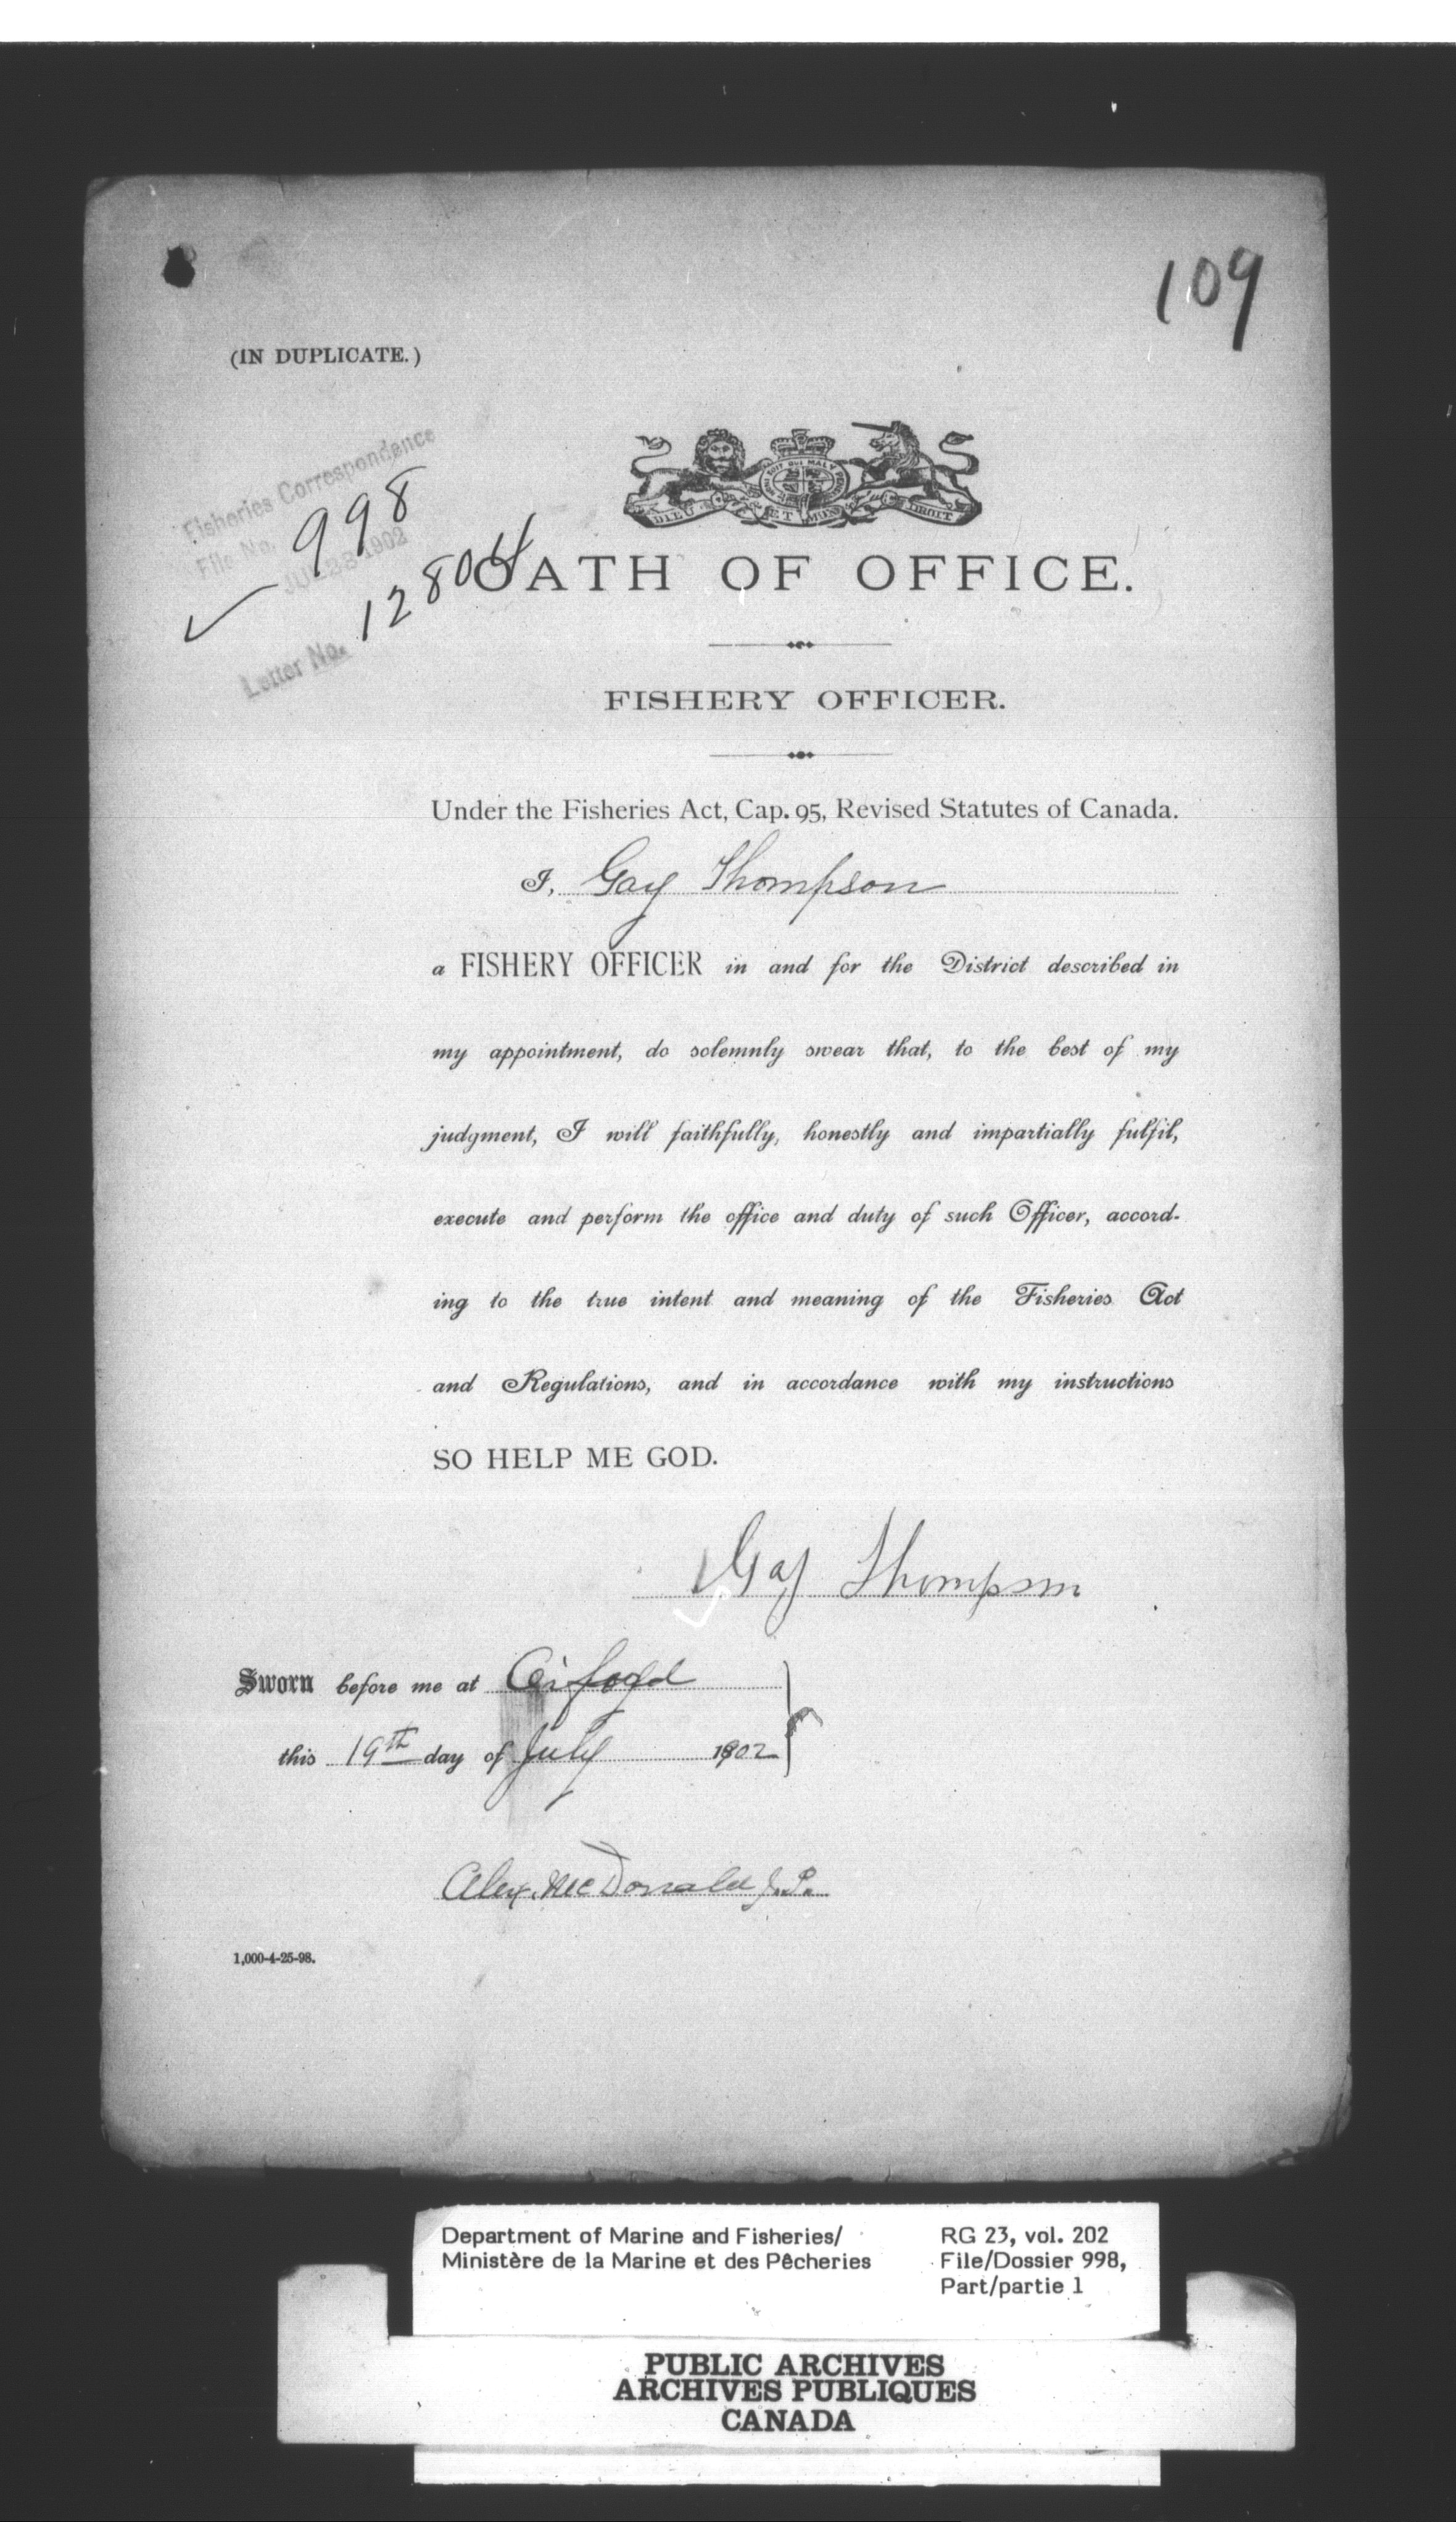 109
(IN DUPLICATE.)
Fisheries Correspondence
File No. 998
JUL 23 1902
Letter No. 12804
HONI SOIT QUI MAL Y PENSE
DIEU ET MON DROIT
OATH OF OFFICE.
FISHERY OFFICER.
Under the Fisheries Act, Cap. 95, Revised Statutes of Canada.
I, Gay Thompson
a FISHERY OFFICER in and for the District described in
my appointment, do solemnly swear that, to the best of my
judgment, I will faithfully, honestly and impartially fulfil,
execute and perform the office and duty of such Officer, accord-
ing to the true intent and meaning of the Fisheries Act
and Regulations, and in accordance with my instructions
SO HELP ME GOD.
Gay Thompson
Sworn before me at
this 19th day of July 1902
Alex. McDonald J.P.
1,000-4-25-98.
Department of Marine and Fisheries/
Ministère de la Marine et des Pêcheries
RG 23, vol. 202
File/Dossier 998,
Part/partie 1
PUBLIC ARCHIVES
ARCHIVES PUBLIQUES
CANADA